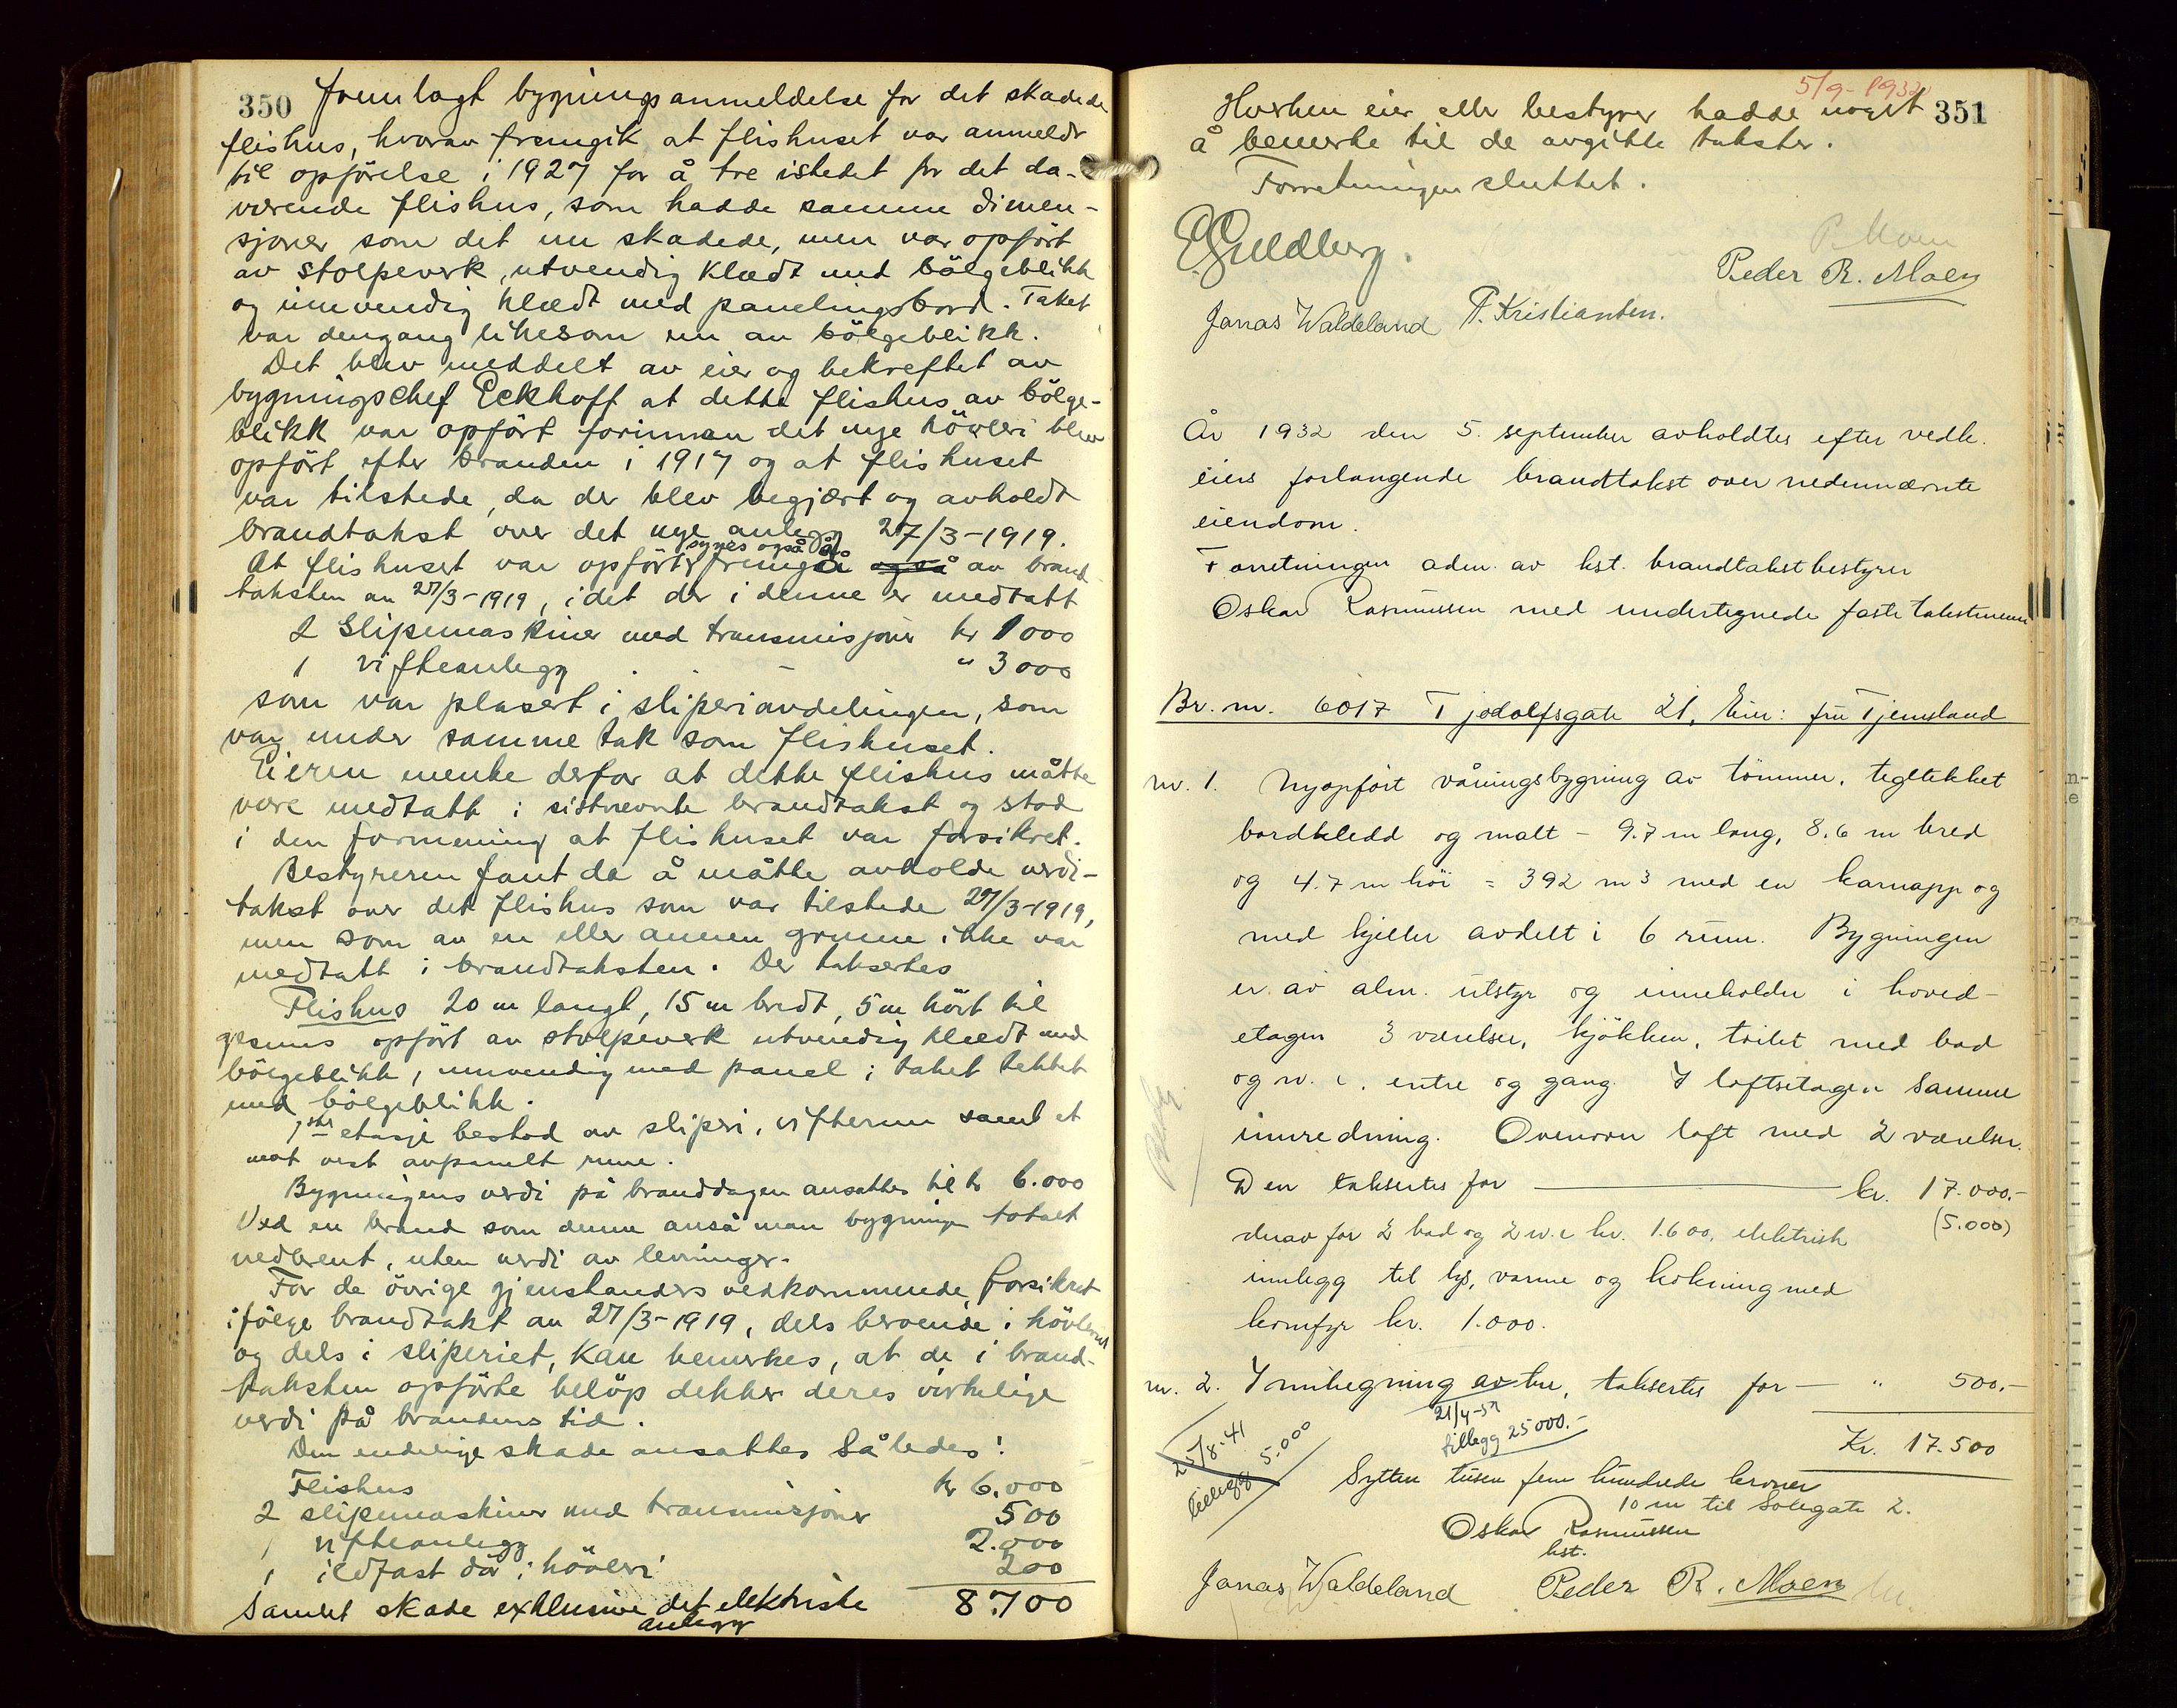 350 fremlagt bygningsanmeldelse for det skadede
flishus, hvorav fremgik at flishuset var anmeldt
til opförelse i 1927 for å tre istedet for det da-
værende flishus, som hadde samme dimen-
sjoner som det nu skadede, men var opfört
av stolpeverk, utvendig klædt med bölgeblikk
og innvendig klædt med panelingsbord. Taket
var dengang likesom nu av bölgeblikk.
Det blev meddelt av eier og bekreftet av
bygningschef Eckhoff at dette flishus av bölge-
blikk var opfört forinnen det nye hövleri blev
opfört efter branden i 1917 og at flishuset
var tilstede, da der blev begjært og avholdt
brandtakst over det nye anlegg 27/3-1919.
synes også å
At flishuset var opfört fremgå også av brand
taksten av 27/3-1919, idet der i denne er medtatt
2 Slipemaskiner med transmisjoner kr 1000
1 vifteanlegg - " 3000
som var plasert i sliperiavdelingen, som
var under samme tak som flishuset.
Eieren mente derfor at dette flishus måtte
være medtatt i sistnevnte brandtakst og stod
i den formening at flishuset var forsikret.
Bestyreren fant da å måtte avholde verdi-
takst over det flishus som var tilstede 27/3-1919,
men som av en eller annen grunn ikke var
medtatt i brandtaksten. Der taksertes
Flishus 20 m langt, 15 m bredt, 5 m höit til
gesims opfört av stolpeverk utvendig klædt med
bölgeblikk, innvendig med panel; taket tekket
med bölgeblikk.
1ste etasje bestod av sliperi, vifterum samt et
mot vest avpanelt rum.
Bygningens verdi på branddagen ansattes til kr 6.000
Ved en brand som denne anså man bygningen totalt
nedbrent, uten verdi av levninger.
For de övrige gjenstanders vedkommende, forsikret
ifölge brandtakst av 27/3-1919, dels beroende i hövleriet
og dels i sliperiet, kan bemerkes, at de i brand-
taksten opförte belöp dekker deres virkelige
verdi på brandens tid.
Den endelige skade ansattes Således:
Flishus kr 6.000
2 slipemaskiner med transmisjoner 500
1 vifteanlegg 2.000
1 ildfast dör i hövleri 200
Samlet skade exklusive det elektriske 8.700
anlegg
5/9-1932
Hverken eier eller bestyrer hadde noget 351
å bemerke til de avgitte takster.
Forretningen sluttet.
E. Guldberg.
P. Moen
Peder R. Moen
Jonas Waldeland P. Kristiansen.
År 1932 den 5. september avholdtes efter vedk.
eiers forlangende brandtakst over nedennævnte
eiendom.
Forretningen adm. av kst. brandtakstbestyrer
Oskar Rasmussen med undertegnede faste takstmenn
Br. nr. 6017 Tjodolfsgate 21, Eier: fru Tjemsland
nr. 1. Nyopfört våningsbygning av tömmer, tegltekket
bordkledd og malt - 9.7 m lang, 8.6 m bred
og 4.7 m höi = 392 m3 med en karnapp og
med kjeller avdelt i 6 rum. Bygningen
er av alm. utstyr og inneholder i hoved-
etagen 3 værelser, kjökken, toilet med bad
og w. c. entre og gang. I loftsetagen samme
innredning. Ovenover loft med 2 værelser.
Den taksertes for kr. 17.000.-
(5.000)
derav for 2 bad og 2 w. c kr. 1.600, elektrisk
innlegg til lys, varme og kokning med
komfyr kr. 1.000.
nr. 2. Innhegning av tre, taksertes for - " 500.-
21/4-51
tillegg 25000.-
25/8-41
tillegg 5.000
Kr. 17.500
Sytten tusen fem hundrede kroner
10 m til Solegate 2.
Oskar Rasmussen
kst.
Jonas Waldeland Peder R. Moen